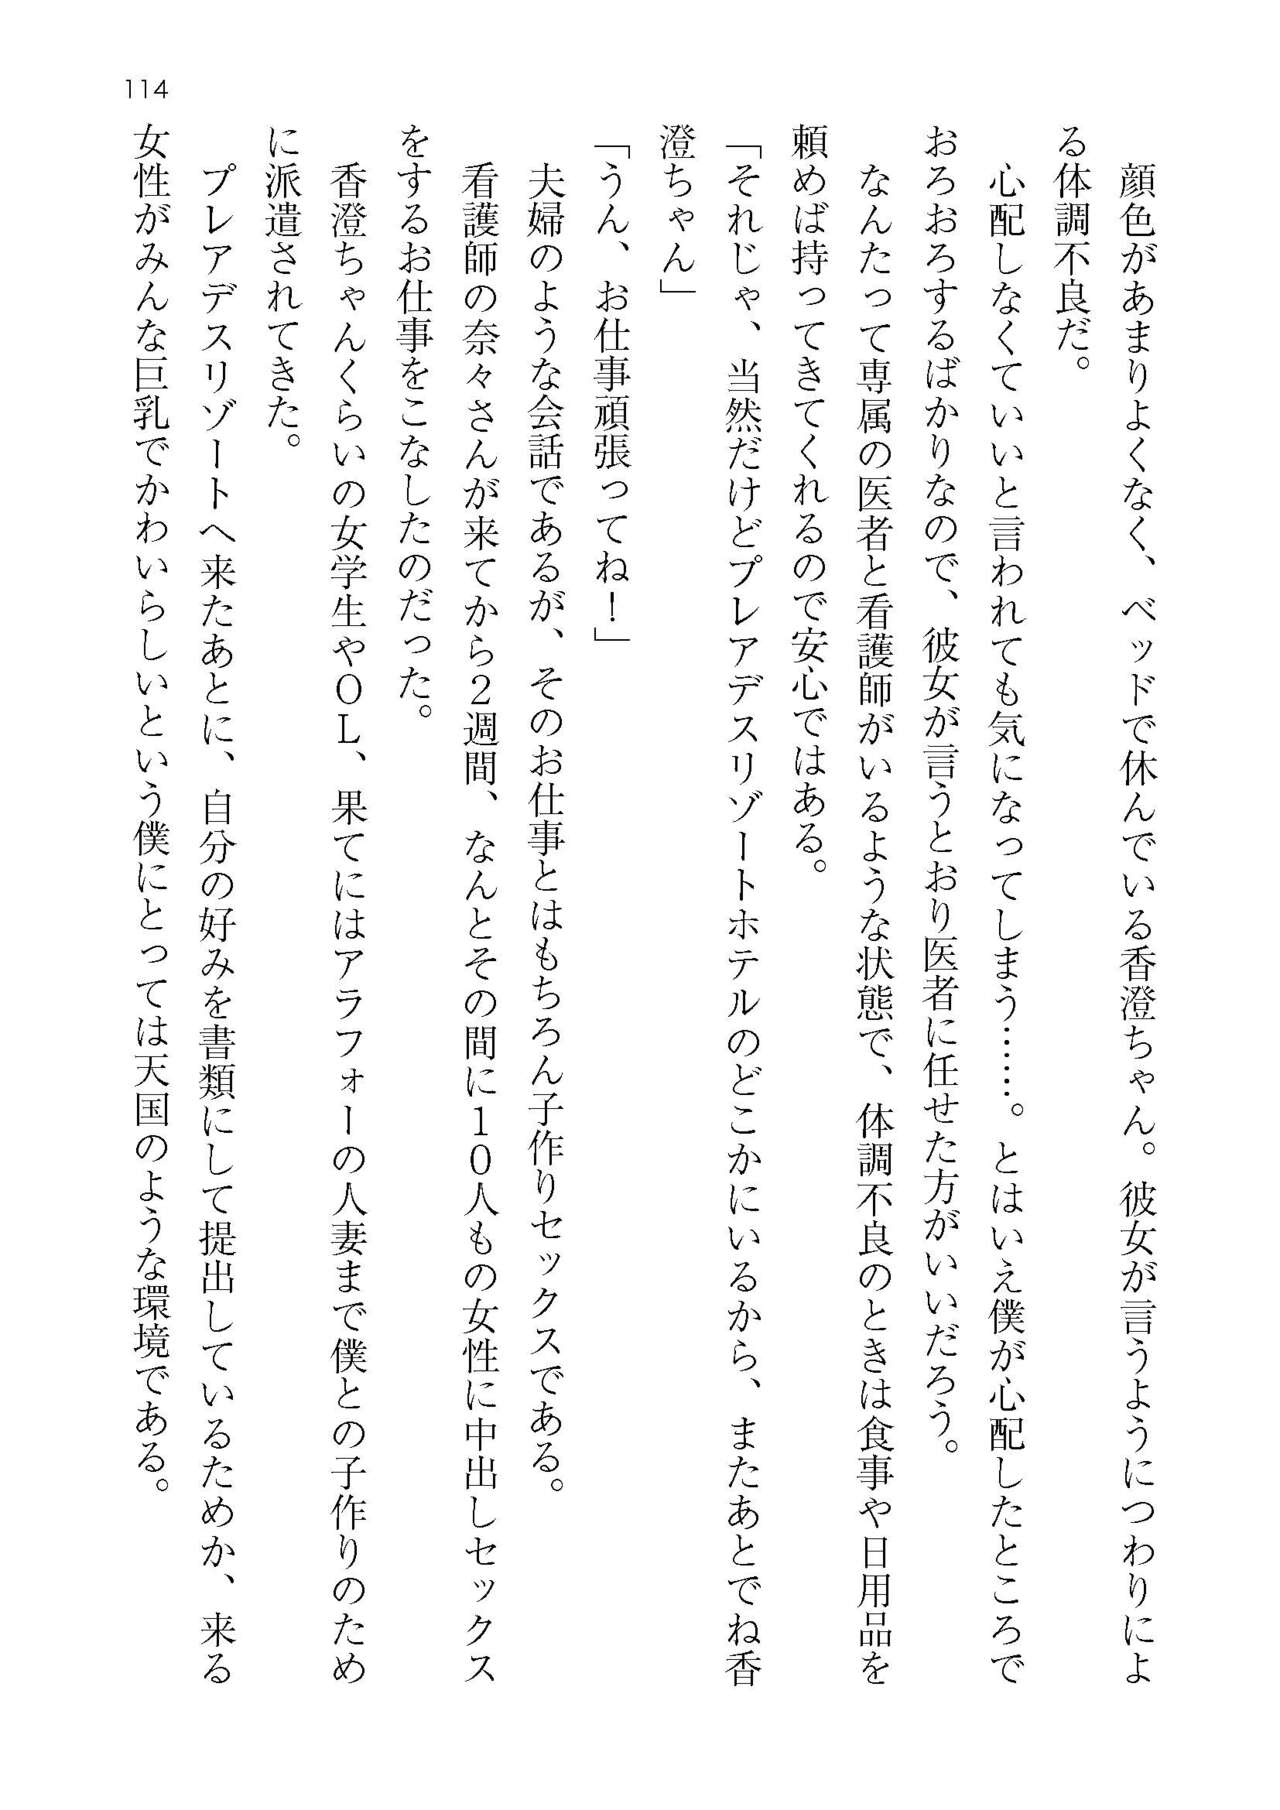 114
顔色があまりよくなく、ベッドで休んでいる香澄ちゃん。彼女が言うようにつわりによ
る体調不良だ。
心配しなくていいと言われても気になってしまう……。とはいえ僕が心配したところで
おろおろするばかりなので、彼女が言うとおり医者に任せた方がいいだろう。
なんたって専属の医者と看護師がいるような状態で、体調不良のときは食事や日用品を
頼めば持ってきてくれるので安心ではある。
「それじゃ、当然だけどプレアデスリゾートホテルのどこかにいるから、またあとでね香
澄ちゃん」
「うん、お仕事頑張ってね!」
夫婦のような会話であるが、そのお仕事とはもちろん子作りセックスである。
看護師の奈々さんが来てから2週間、なんとその間に10人もの女性に中出しセックス
をするお仕事をこなしたのだった。
香澄ちゃんくらいの女学生やOL、果てにはアラフォーの人妻まで僕との子作りのため
に派遣されてきた。
プレアデスリゾートへ来たあとに、自分の好みを書類にして提出しているためか、来る
女性がみんな巨乳でかわいらしいという僕にとっては天国のような環境である。